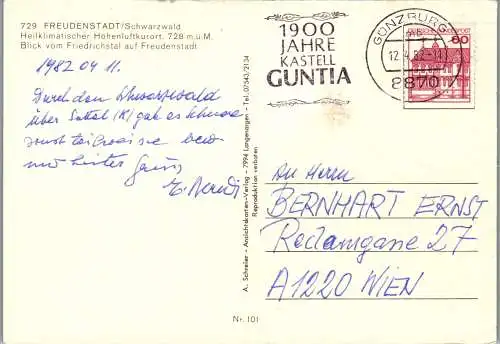 729 FREUDENSTADT/Schwarzwald
Heilklimatischer Höhenluftkurort, 728 m.ü.M.
Blick vom Friedrichstal auf Freudenstadt
1982 04 11.
Durch den Schwarzwald
über Sattel (K) gab es Schnee
sonst teilweise
A. Schreiler - Ansichtskarten-Verlag - 7994 Langenargen - Tel. 07543/2134
Reproduktion verboten
Nr. 101
1900
JAHRE
KASTELL
GUNTIA
GÜNZBURG
12.4.82-14
8870
DEUTSCHE BUNDESPOST
60
An Herrn
BERNHART ERNST
Reclamgasse 27
A1220 WIEN